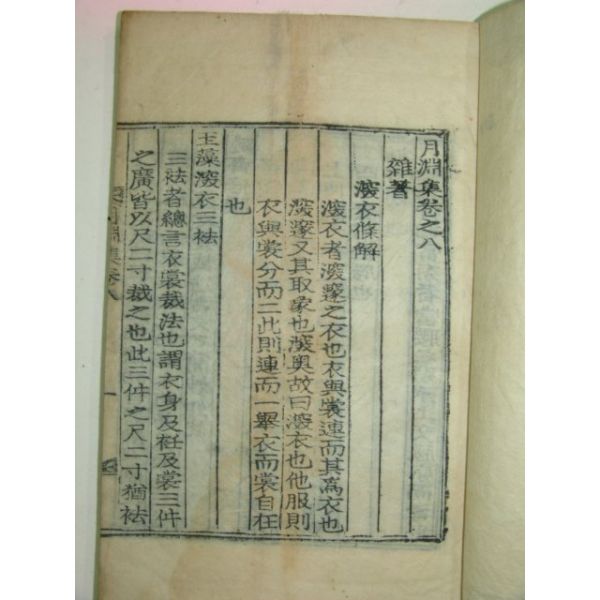 月淵集卷之八
雜著
深衣條解
深衣者深邃之衣也衣與裳連而其爲衣也
深邃又其取象也深奧故曰深衣也他服則
衣與裳分而二此則連而一擧衣而裳自在
也
玉藻深衣三袪
三袪者總言衣裳裁法也謂衣身及袵及裳三件
之廣皆以尺二寸裁之也此三件之尺二寸猶袪
月淵集卷八